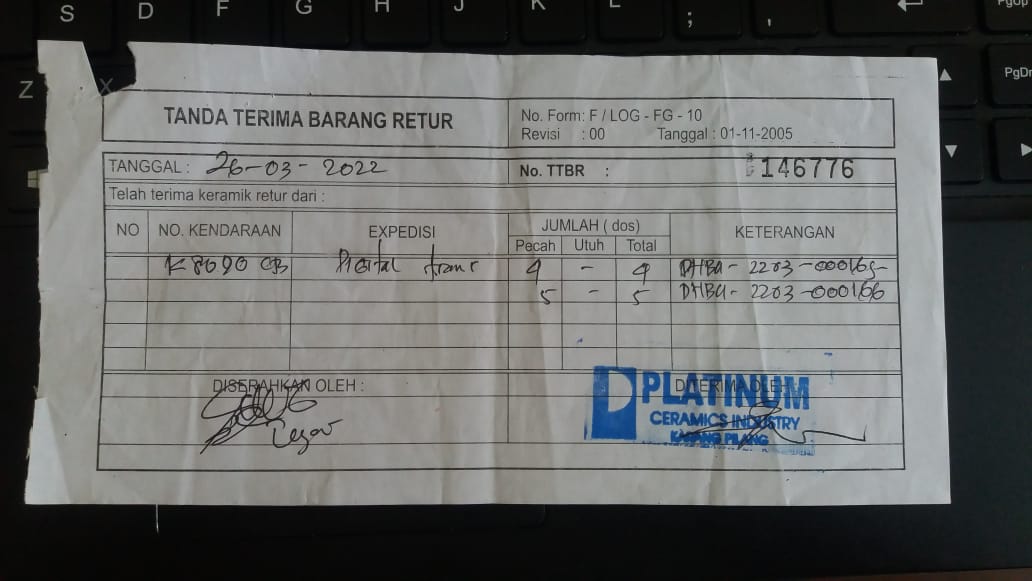 TANDA TERIMA BARANG RETUR
No. Form: F / LOG - FG - 10
Revisi : 00 Tanggal : 01-11-2005
TANGGAL : 26-03-2022
No. TTBR : 146776
Telah terima keramik retur dari :
NO NO. KENDARAAN EXPEDISI JUMLAH ( dos) KETERANGAN
Pecah Utuh Total
K 8090 CB Digital 4 - 4 DHBA - 2203 - 000165
5 - 5 DHBA - 2203 - 000166
DISERAHKAN OLEH :
DITERIMA OLEH :
PLATINUM
CERAMICS INDUSTRY
KARANG PILANG